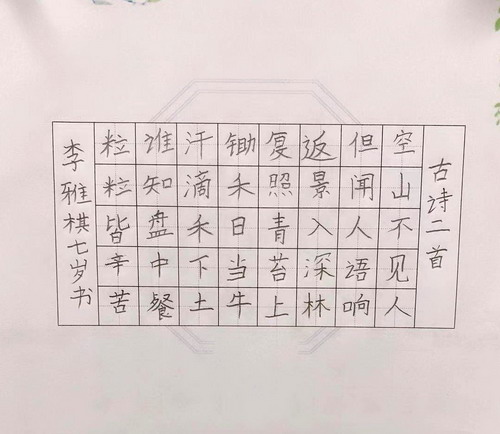 古诗二首
空山不见人
但闻人语响
返景入深林
复照青苔上
锄禾日当牛
汗滴禾下土
谁知盘中餐
粒粒皆辛苦
李雅棋七岁书